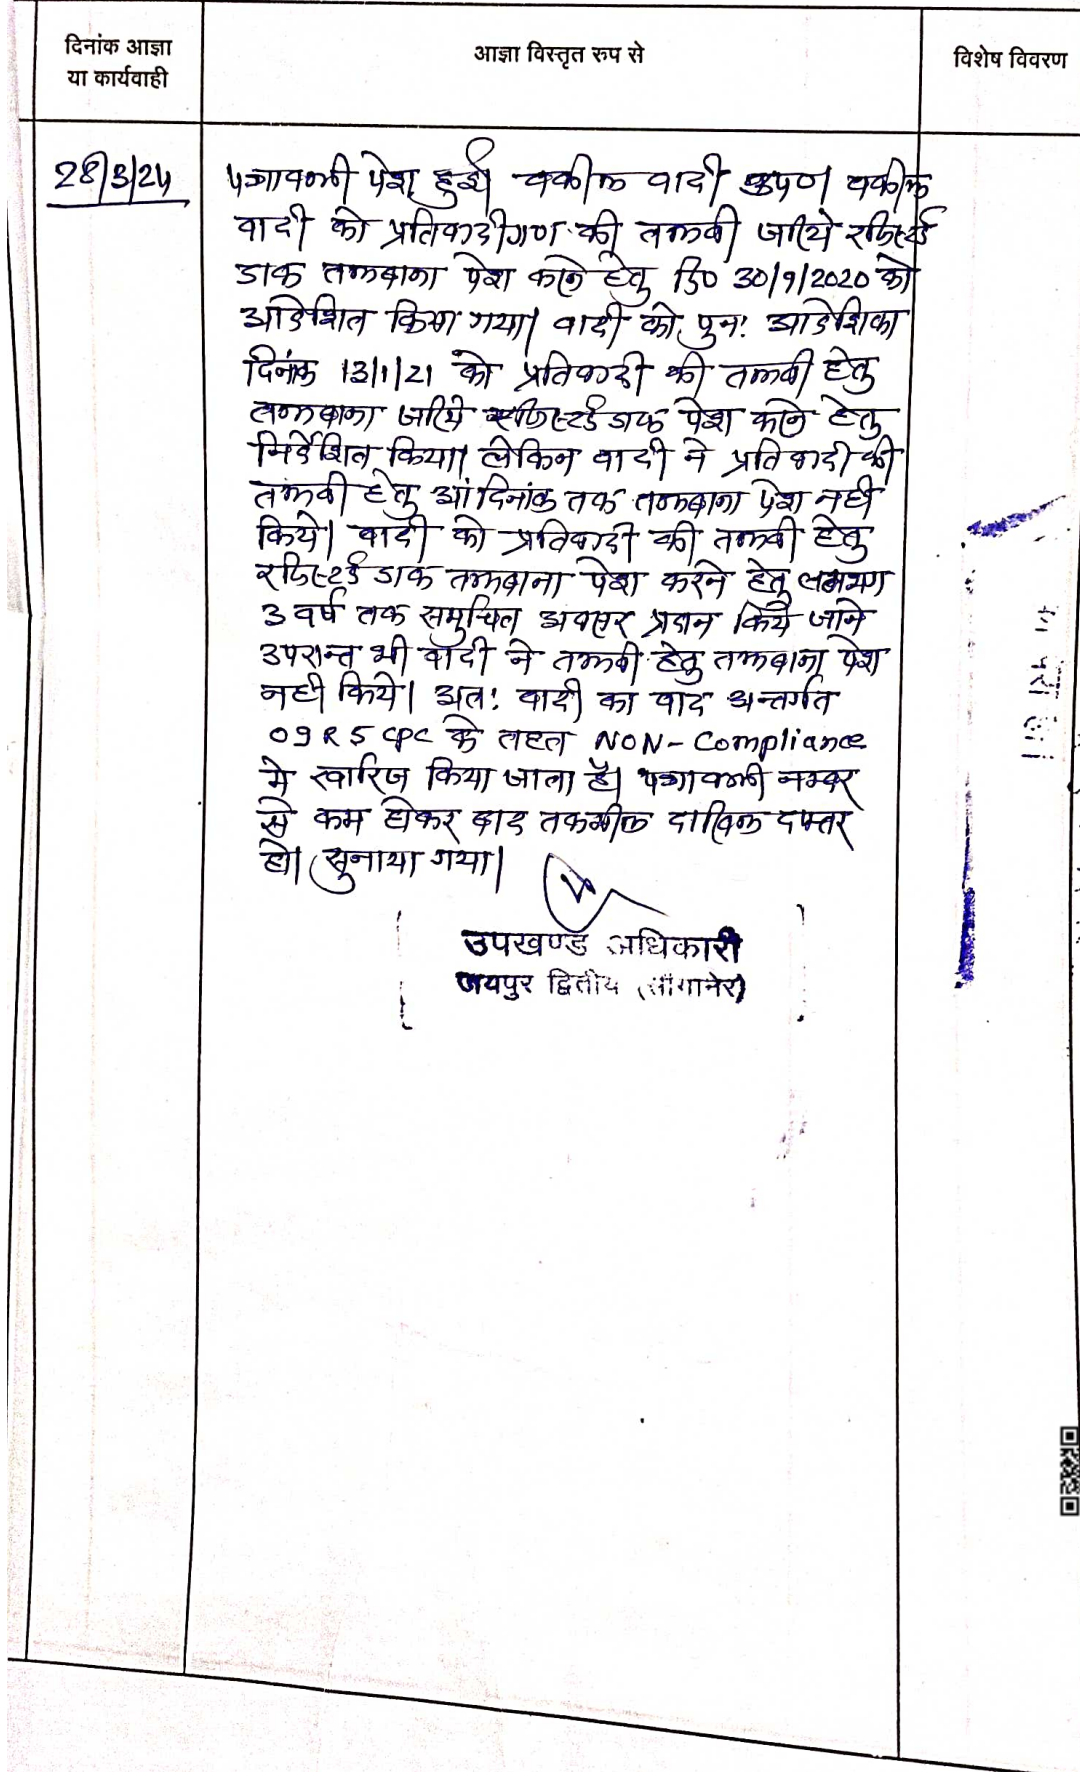 दिनांक आज्ञा
या कार्यवाही
आज्ञा विस्तृत रुप से
विशेष विवरण
28/3/24
पत्रावली पेश हुई। वकील वादी उप0। वकील
वादी को प्रतिवादीगण की तलबी जरिये रजिस्टर्ड
डाक तलबाना पेश करने हेतु दि0 30/9/2020 को
आदेशित किया गया। वादी को पुनः आदेशिका
दिनांक 13/1/21 को प्रतिवादी की तलबी हेतु
तलबाना जरिये रजिस्टर्ड डाक पेश करने हेतु
निर्देशित किया। लेकिन वादी ने प्रतिवादी की
तलबी हेतु आदिनांक तक तलबाना पेश नही
किये। वादी को प्रतिवादी की तलबी हेतु
रजिस्टर्ड डाक तलबाना पेश करने हेतु लगभग
3 वर्ष तक समुचित अवसर प्रदान किये जाने
उपरान्त भी वादी ने तलबी हेतु तलबाना पेश
नही किये। अतः वादी का वाद अन्तर्गत
O9 R5 CPC के तहत NON-Compliance
मे खारिज किया जाता है। पत्रावली नम्बर
से कम होकर बाद तकमील दाखिल दफ्तर
हो। सुनाया गया।
उपखण्ड अधिकारी
जयपुर द्वितीय (सांगानेर)